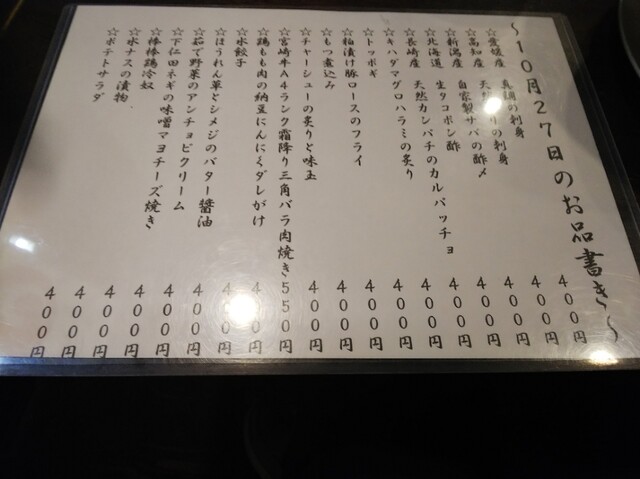 ～10月27日のお品書き～
☆愛媛産 真鯛の刺身 400円
☆高知産 天然 りの刺身 400円
☆新潟産 自家製サバの酢〆 400円
☆北海道 生タコポン酢 400円
☆長崎産 天然カンパチのカルパッチョ 400円
☆キハダマグロハラミの炙り 400円
☆トッポギ 400円
☆粕漬け豚ロースのフライ 400円
☆もつ煮込み 400円
☆チャーシューの炙りと味玉 400円
☆宮崎牛A4ランク霜降り三角バラ肉焼き 550円
☆鶏もも肉の納豆にんにくダレがけ 400円
☆水餃子 400円
☆ほうれん草とシメジのバター醤油 400円
☆茹で野菜のアンチョビクリーム 400円
☆下仁田ネギの味噌マヨチーズ焼き 400円
☆棒棒鶏冷奴 400円
☆水ナスの漬物 400円
☆ポテトサラダ 400円